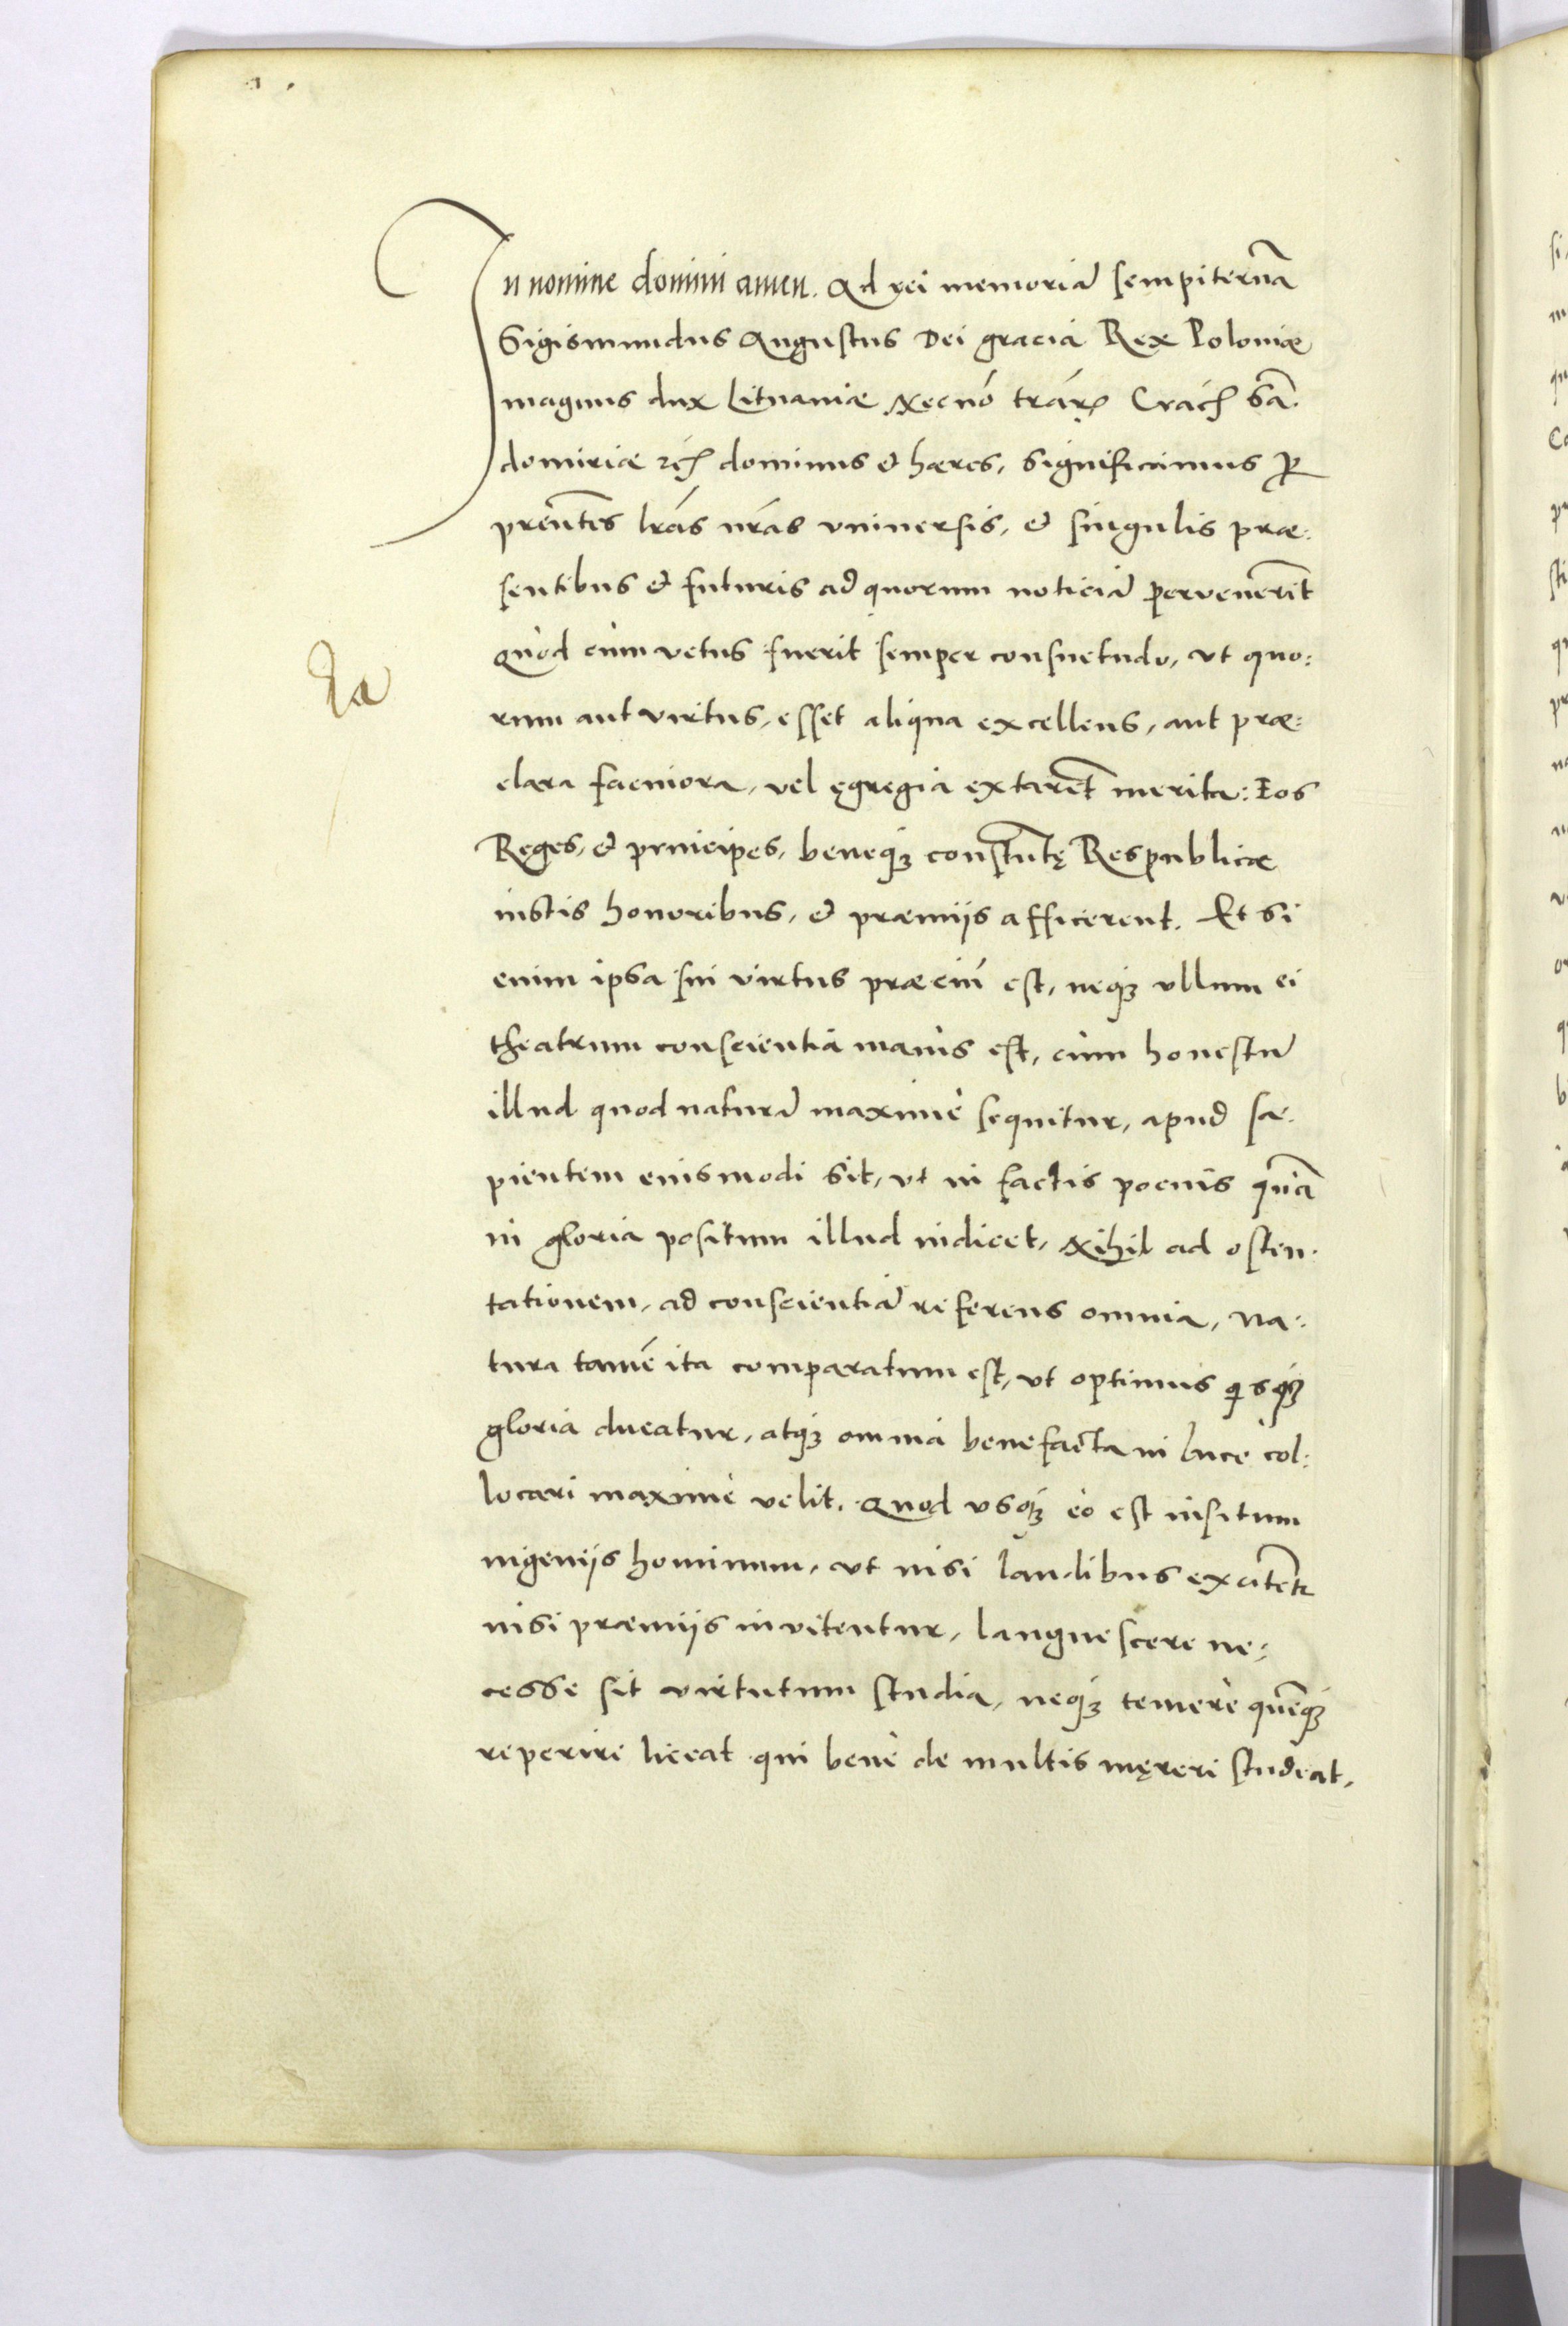 In nomine domini amen. Ad rei memoriā sempiternā
Sigismundus Augustus Dei gracia Rex Poloniæ
magnus dux Lituaniæ Necnō trārꝝ Crach Sā.
domiriæ zc dominus et hæres, Significamus ꝑ
prēntes lrās nrās vniuersis, et singulis præ:
sentibus et futuris ad quorum noticiā pervenerīt
quòd cùm vetus fuerit semper consuetudo, vt quo:
rum aut virtus, esset aliqua excellens, aut præ:
clara facinora, vel ęgregia extarēt merita: Eos
Reges, et principes, beneqʒ constitutę Respublicæ
iustis honoribus, et præmijs afficerent. Et si
enim ipsa sui virtus præciū est, neqʒ vllum ei
theatrum conscientia maius est, cùm honestū
illud quod naturā maximè sequitur, apud sa:
pientem eiusmodi sit, vt in factis pocius quā
in gloria positum illud iudicet, Nihil ad osten:
tationem, ad conscientiā referens omnia, Na:
tura tamē ita comparatum est, vt optimus qisqʒ
gloria ducatur, atqʒ omnia benefacta in luce col:
locari maximè velit. Quod vsqʒ eò est insitum
ingenijs hominum, vt nisi laudibus excitent᷑
nisi præmijs invitentur, languescere ne:
cesse sit virtutum studia, neqʒ temerè quēqʒ
reperire liceat qui bene de multis męreri studeat,